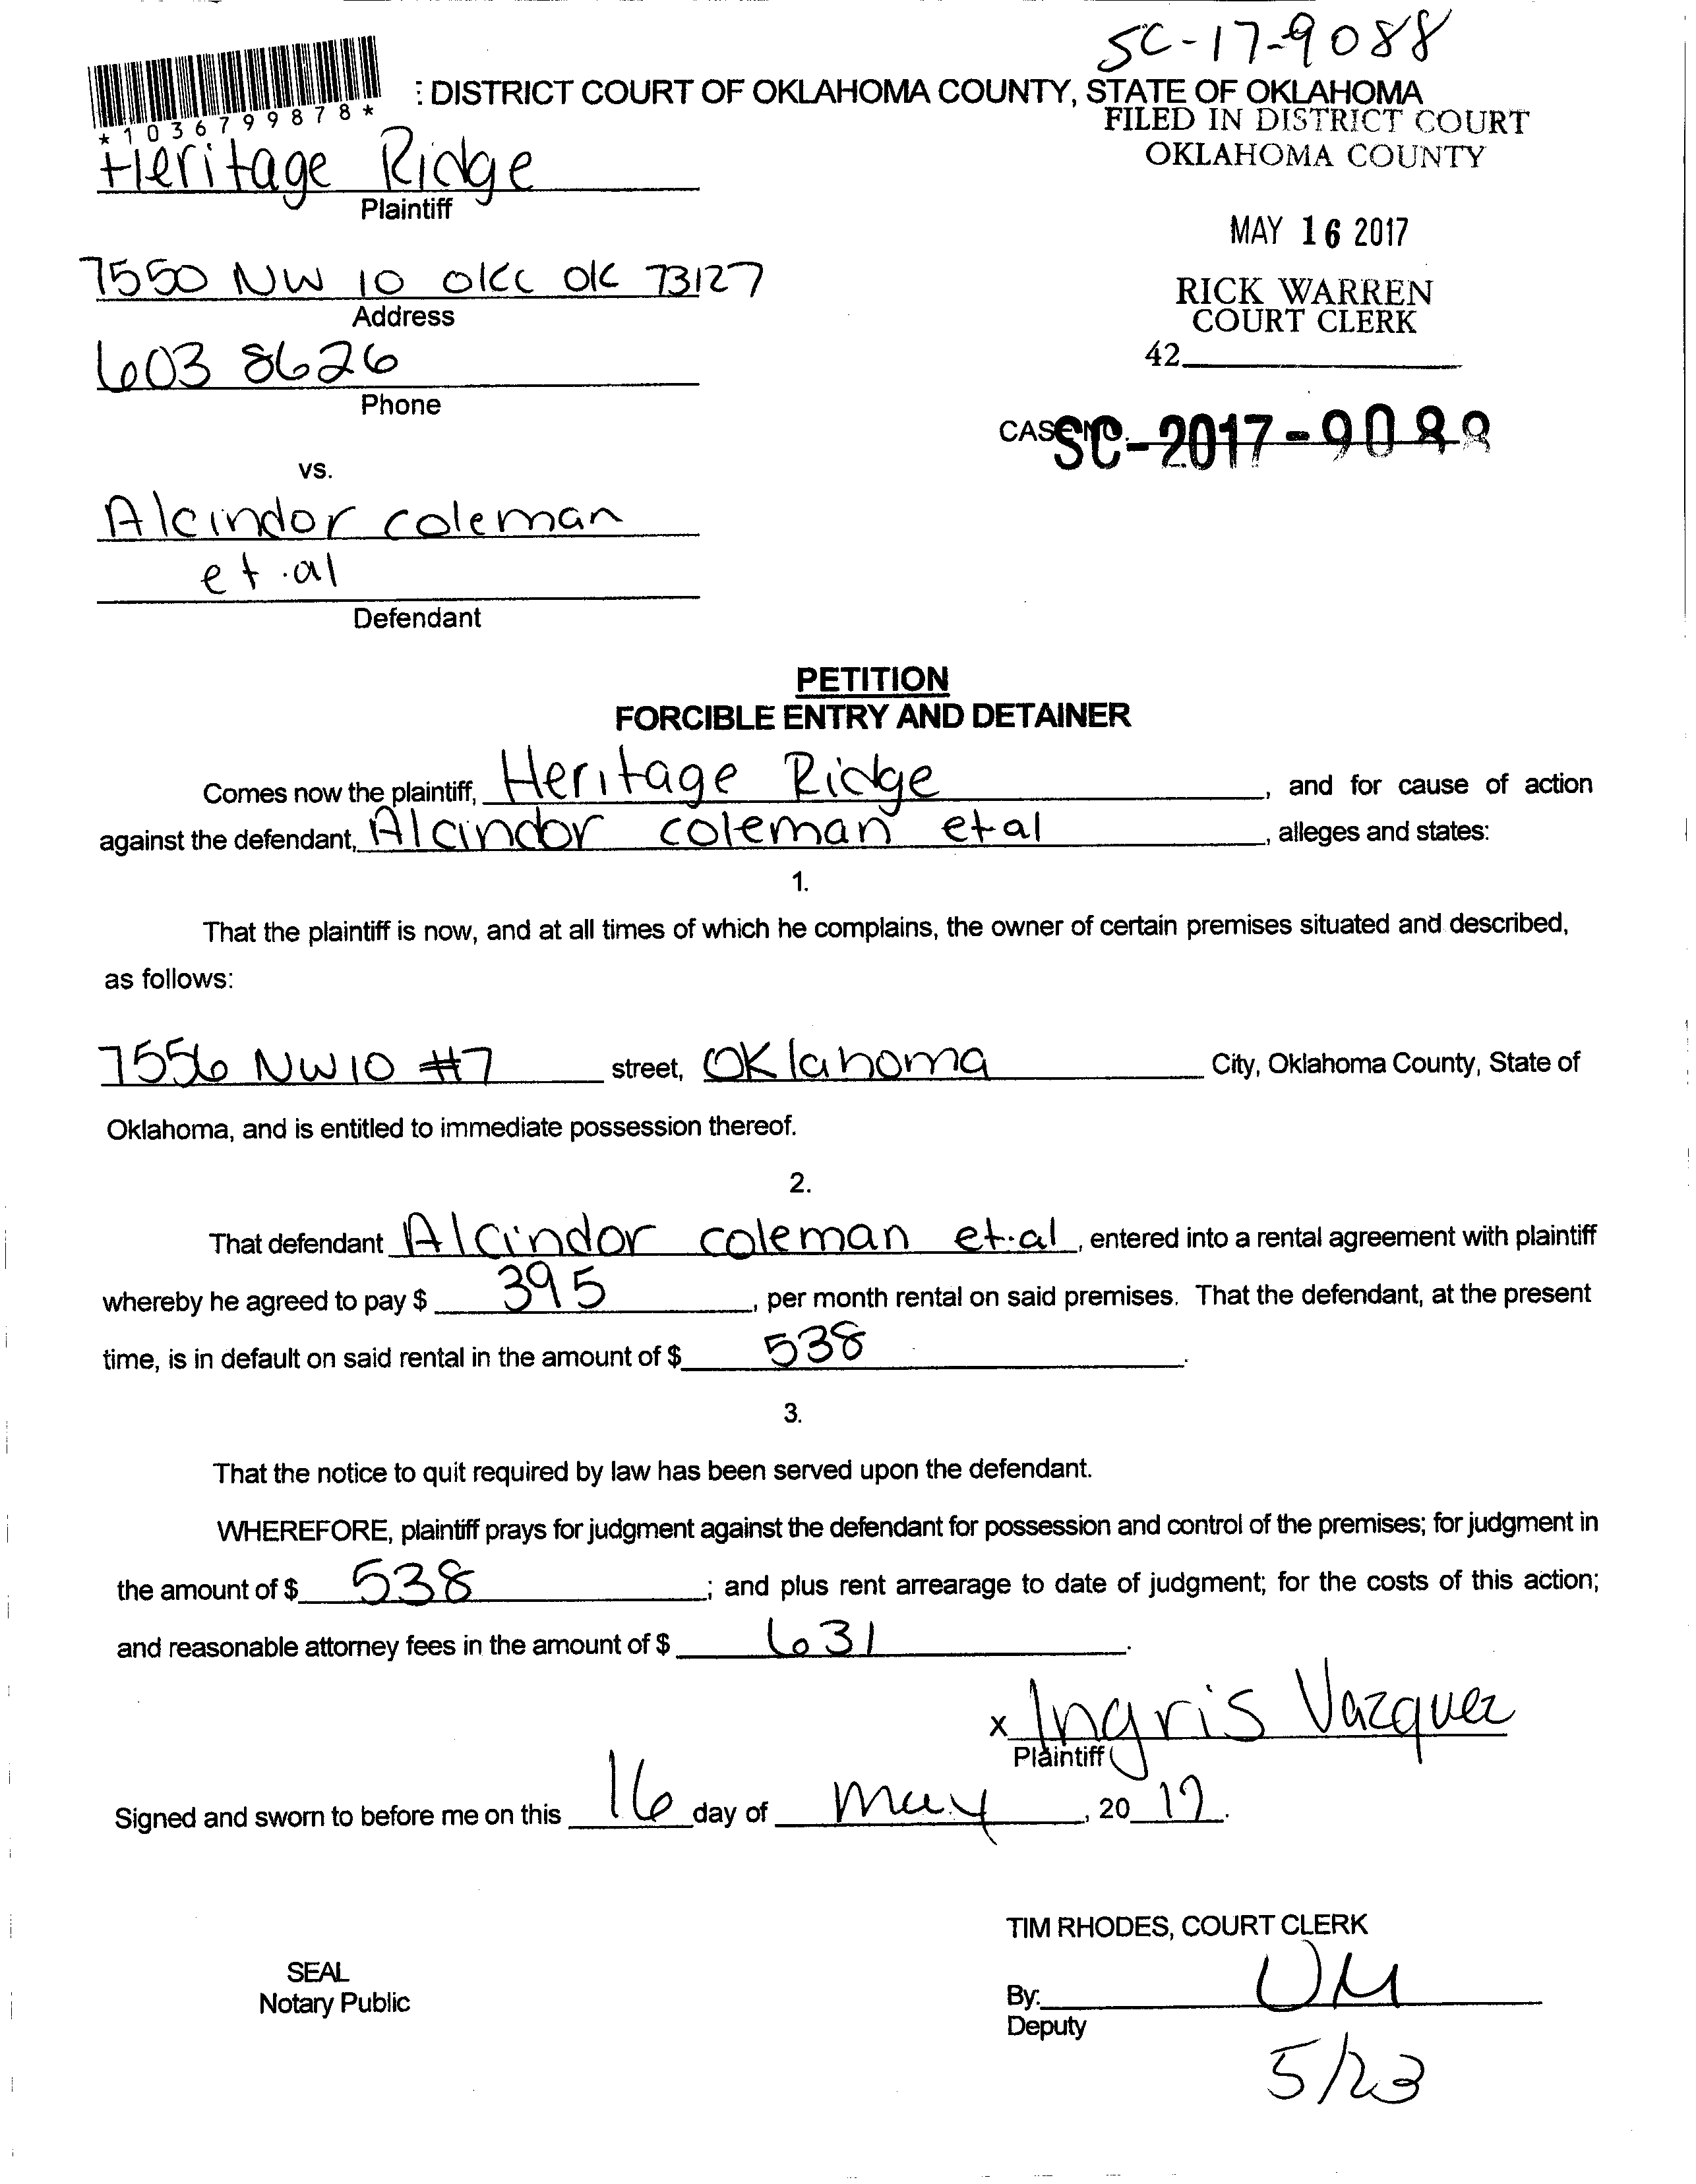 SC-17-9088
*1036799878*
: DISTRICT COURT OF OKLAHOMA COUNTY, STATE OF OKLAHOMA
FILED IN DISTRICT COURT
OKLAHOMA COUNTY
Heritage Ridge
Plaintiff
MAY 16 2017
7550 NW 10 OKC OK 73127
Address
RICK WARREN
COURT CLERK
603 8626
Phone
42
CASE NO. SC-2017-9088
vs.
Alcindor coleman
et.al
Defendant
PETITION
FORCIBLE ENTRY AND DETAINER
Comes now the plaintiff, Heritage Ridge, and for cause of action
against the defendant, Alcindor coleman et al, alleges and states:
1.
That the plaintiff is now, and at all times of which he complains, the owner of certain premises situated and described,
as follows:
7556 NW 10 #7 street, Oklahoma City, Oklahoma County, State of
Oklahoma, and is entitled to immediate possession thereof.
2.
That defendant Alcindor coleman et.al, entered into a rental agreement with plaintiff
whereby he agreed to pay $ 395, per month rental on said premises. That the defendant, at the present
time, is in default on said rental in the amount of $ 538.
3.
That the notice to quit required by law has been served upon the defendant.
WHEREFORE, plaintiff prays for judgment against the defendant for possession and control of the premises; for judgment in
the amount of $ 538; and plus rent arrearage to date of judgment; for the costs of this action;
and reasonable attorney fees in the amount of $ 631.
x Ingris Vazquez
Plaintiff
Signed and sworn to before me on this 16 day of May, 20 17.
TIM RHODES, COURT CLERK
SEAL
Notary Public
By:
Deputy
5/23